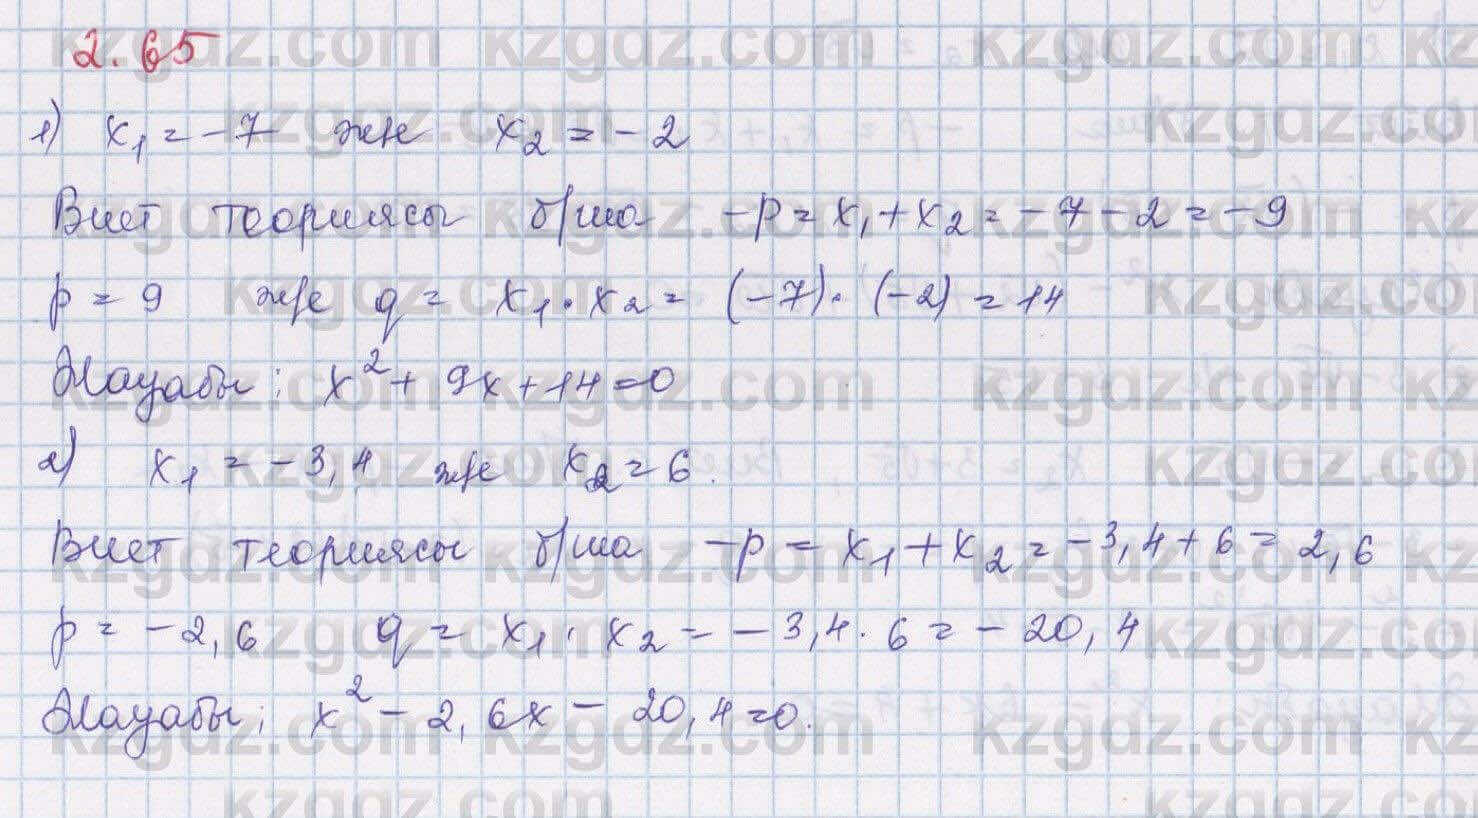 2.65
1) x₁ = -7 же x₂ = -2
Виет теориясы б/ша -p = x₁ + x₂ = -7 - 2 = -9
p = 9 же q = x₁ · x₂ = (-7) · (-2) = 14
Жауабы: x² + 9x + 14 = 0
2) x₁ = -3,4 же x₂ = 6.
Виет теориясы б/ша -p = x₁ + x₂ = -3,4 + 6 = 2,6
p = -2,6 q = x₁ · x₂ = -3,4 · 6 = -20,4
Жауабы: x² - 2,6x - 20,4 = 0.
kzgdz.com